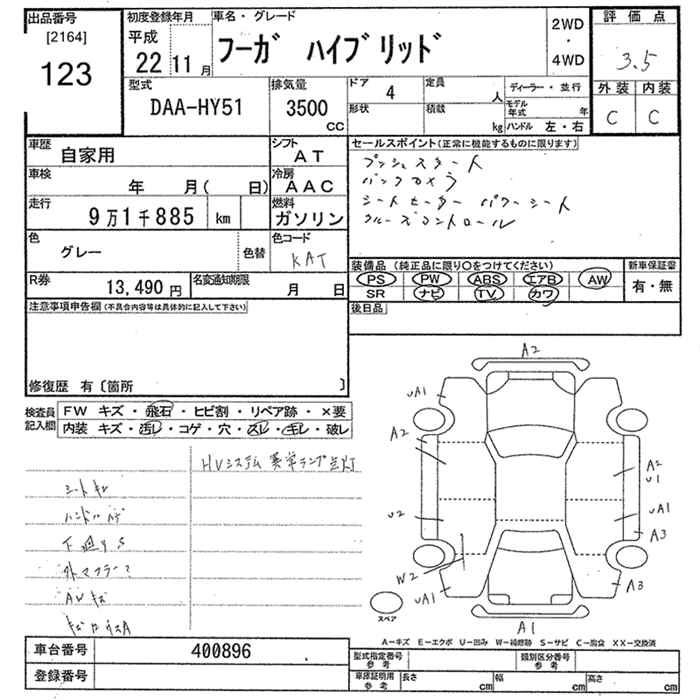 出品番号
[2164]
123
初度登録年月
平成
22 11月
車名・グレード
フーガ ハイブリッド
2WD
・
4WD
評価点
3.5
外装 内装
C C
型式
DAA-HY51
排気量
3500
CC
ドア
4
定員
人
形状
積載
kg
ディーラー・並行
モデル年式 年
ハンドル 左・右
車歴
自家用
シフト
AT
車検
年 月( 日)
冷房
AAC
走行
9万1千885 km
燃料
ガソリン
色
グレー
色替
色コード
KAT
R券
13,490円
名変通知期限
月 日
セールスポイント(正常に機能するものに限ります)
プッシュスタート
バックカメラ
シートヒーター パワーシート
クルーズコントロール
装備品(純正品に限り○をつけてください)
新車保証書
PS PW ABS エアB AW
SR ナビ TV カワ
有・無
後日品
注意事項申告欄(不具合内容等は具体的に記入して下さい)
修復歴 有〔箇所 〕
検査員記入欄
FW キズ・飛石・ヒビ割・リペア跡・×要
内装 キズ・汚レ・コゲ・穴・スレ・キレ・破レ
HVシステム 異常ランプ点灯
シートキレ
下廻りS
AWキズ
A2
UA1
A2
A2
U1
U2
UA1
A3
W2
UA1
A3
A1
スペア
A-キズ E-エクボ U-凹み W-補修跡 S-サビ C-腐食 XX-交換済
車台番号
400896
登録番号
型式指定番号
参考
類別区分番号
参考
車庫証明用
参考
長さ cm
幅 cm
高さ cm